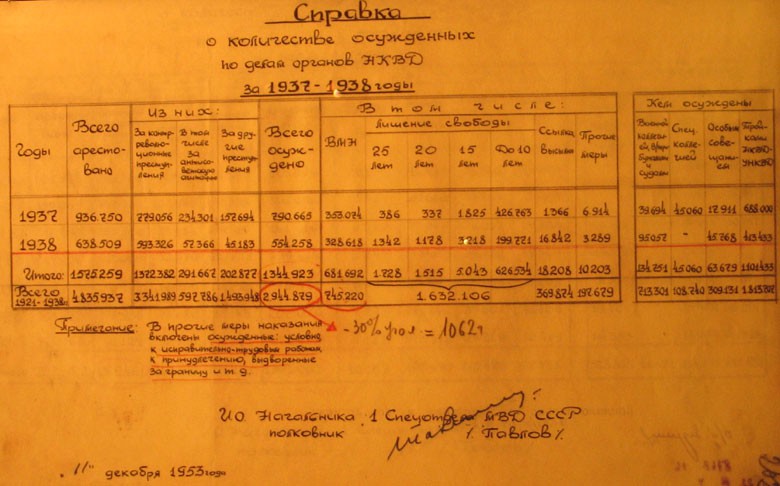 Справка
о количестве осужденных
по делам органов НКВД
за 1937-1938 годы
Годы Всего арестовано Из них: Всего осуждено В том числе: Кем осуждены
За контрреволюционные преступления В том числе за антисоветскую агитацию За другие преступления ВМН лишение свободы Ссылка высылка Прочие меры Спец. коллегией Особым совещанием Тройками НКВД-УНКВД
25 лет 20 лет 15 лет До 10 лет
1937 936.750 779.056 234.301 157.694 790.665 353.074 386 337 1.825 426.763 1.366 6.914 39.694 45.060 17.911 688.000
1938 638.509 593.326 57.366 45.183 554.258 328.618 1342 1178 3218 199.771 16.842 3.289 95.057 - 45.768 413.433
Итого: 1575259 1372382 291.667 202877 1344.923 681.692 1.728 1.515 5.043 626534 18208 10.203 134.751 45.060 63.679 1101433
Всего 1921-1938г. 4.835.937 3341989 597.786 1493.948 2944.879 745.220 1.632.106 369.874 197.679 213301 108.740 309.131
Примечание: В прочие меры наказания
включены осужденные: условно
к исправительно-трудовым работам
к принудлечению, выдворенные
за границу и т. д.
-30% угол = 1062т
ИО Начальника 1 Спецотдела МВД СССР
полковник / Павлов /
"11" декабря 1953 года